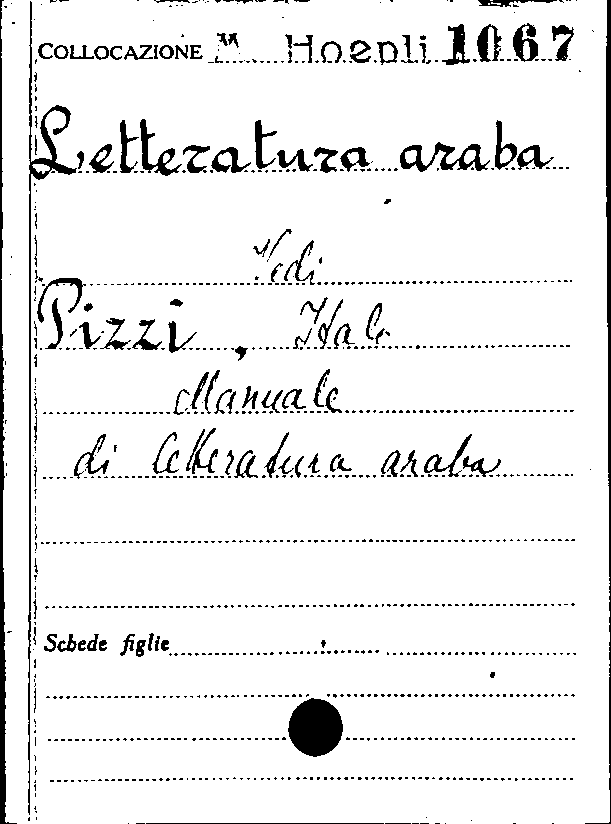 COLLOCAZIONE M. Hoepli 1067
Letteratura araba
Vedi
Pizzi, Italo
Manuale
di letteratura araba
Schede figlie